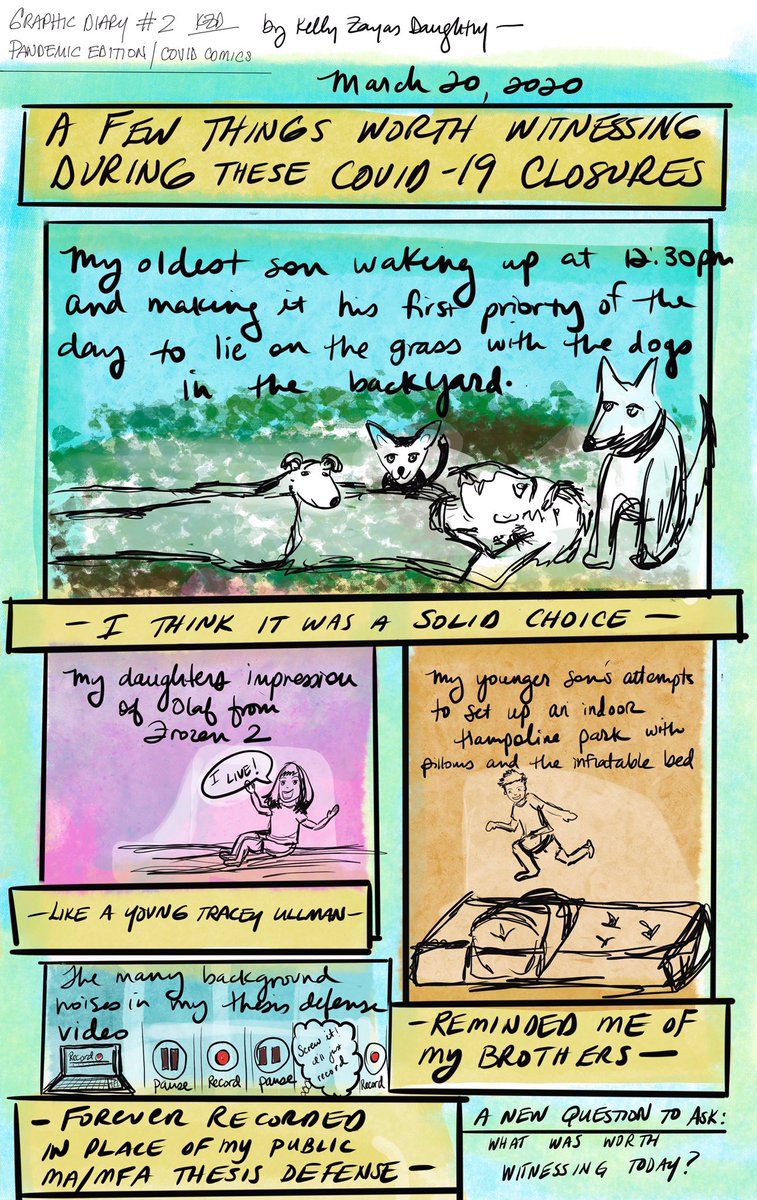 GRAPHIC DIARY #2 KZD by Kelly Zayas Daughtry —
PANDEMIC EDITION/COVID COMICS
March 20, 2020
A FEW THINGS WORTH WITNESSING
DURING THESE COVID-19 CLOSURES
My oldest son waking up at 12:30pm
and making it his first priority of the
day to lie on the grass with the dogs
in the backyard.
— I THINK IT WAS A SOLID CHOICE —
My daughters impression
of Olaf from
Frozen 2
I LIVE!
— LIKE A YOUNG TRACEY ULLMAN —
My younger son's attempts
to set up an indoor
trampoline park with
pillows and the inflatable bed
— REMINDED ME OF
MY BROTHERS —
The many background
noises in my thesis defense
video
Record
Pause
Record
Pause
Screw it!
I'll just
record
Record
— FOREVER RECORDED
IN PLACE OF MY PUBLIC
MA/MFA THESIS DEFENSE —
A NEW QUESTION TO ASK:
WHAT WAS WORTH
WITNESSING TODAY?